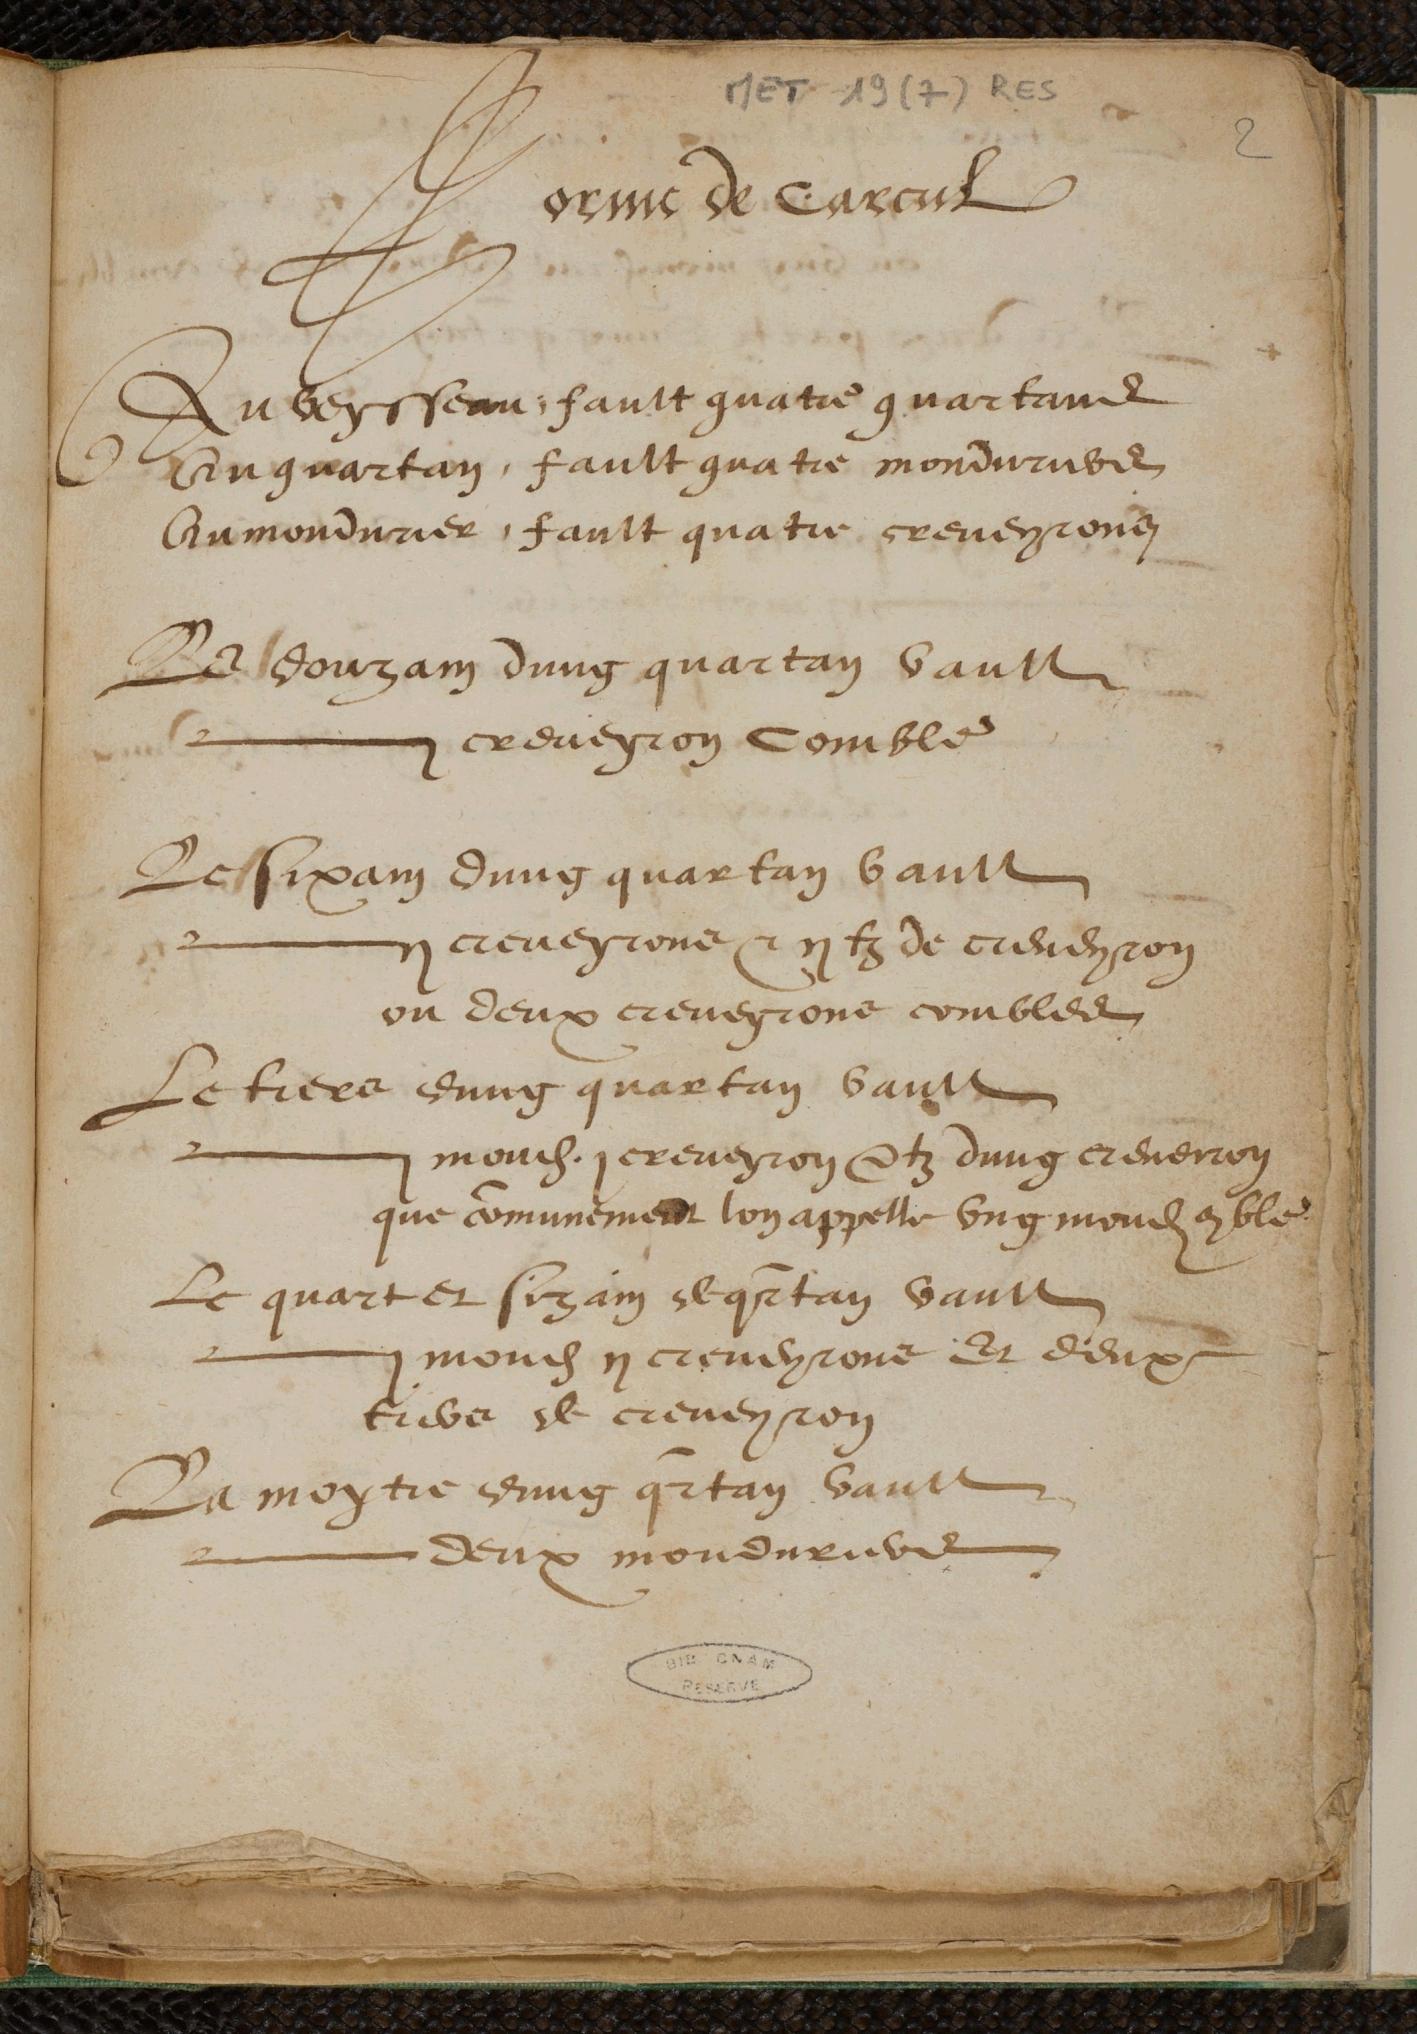 MET 19(7) RES
2
Forme de Carcul
Au veysseau, fault quatre quartans
Au quartan, fault quatre monduriers
Au mondurier, fault quatre creveyrons
Le douzain dung quartan vault
j creveyron comble
Le sixain dung quartan vault
ij creveyrons et ij tz de creveyron
ou deux creveyrons combles
Le tiers dung quartan vault
j mond. j creveyron & tz dung creveiron
que cōmunement lon appelle ung mond 9ble
Le quart et sizain de qrtan vault
j mond ij creveyrons Et deux
tiers de creveyron
La moytie dung qrtan vault
deux monduriers
BIB CNAM
RESERVE